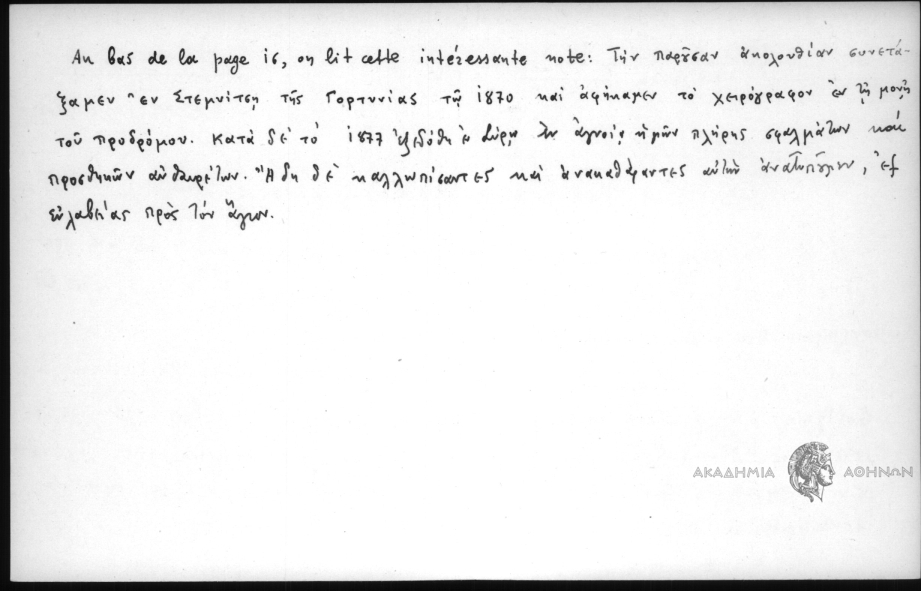 Au bas de la page ις, on lit cette intéressante note: Τὴν παροῦσαν ἀκολουθίαν συνετά-
ξαμεν ἐν Στεμνίτσῃ τῆς Γορτυνίας τῷ 1870 καὶ ἀφήκαμεν τὸ χειρόγραφον ἐν τῇ μονῇ
τοῦ Προδρόμου. Κατὰ δὲ τὸ 1877 ἐξεδόθη ἐν Σύρῳ ἐν ἀγνοίᾳ ἡμῶν πλήρης σφαλμάτων καὶ
προσθηκῶν αὐθαιρέτων. Ἤδη δὲ καλλωπίσαντες καὶ ἀνακαθάραντες αὐτὴν ἀνατυποῦμεν, ἐξ
εὐλαβείας πρὸς τὸν ἅγιον.
ΑΚΑΔΗΜΙΑ ΑΘΗΝΩΝ